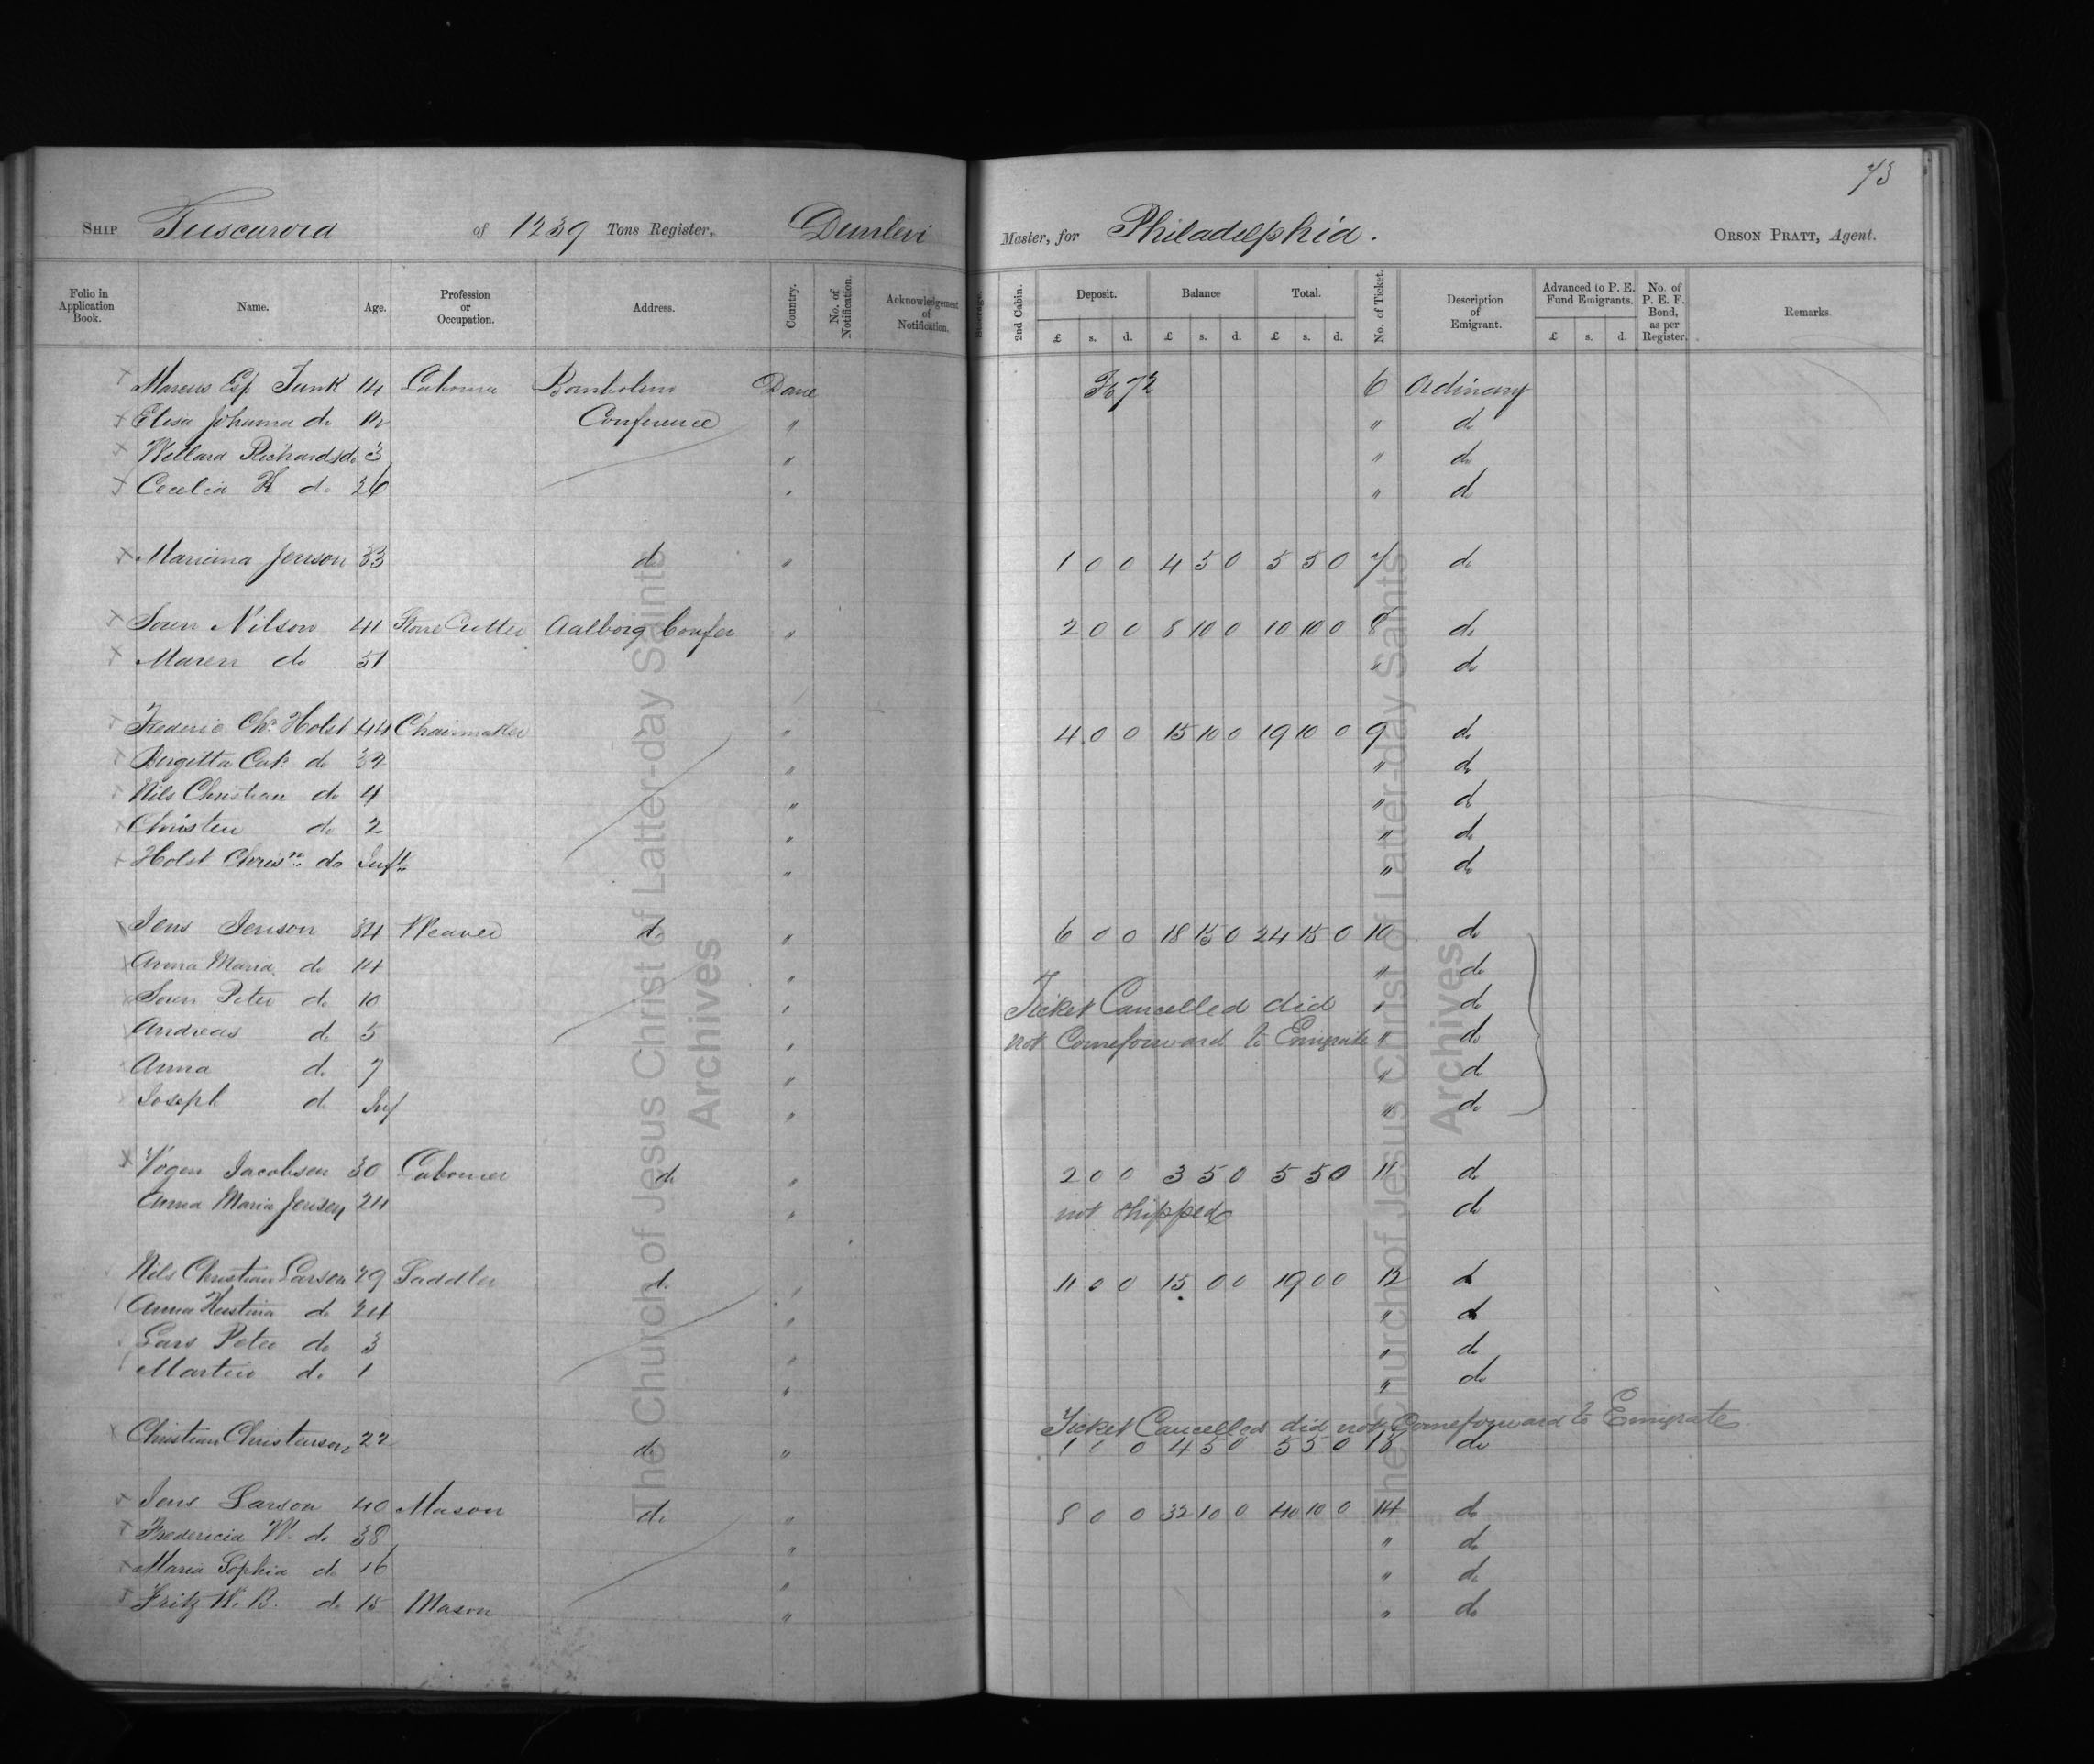 73
SHIP Tuscarora of 1239 Tons Register, Dunlevi Master, for Philadelphia. ORSON PRATT, Agent.
Folio in Application Book. Name. Age. Profession or Occupation. Address. Country. No. of Notification. Acknowledgement of Notification. Steerage. 2nd Cabin. Deposit. Balance Total. No. of Ticket. Description of Emigrant. Advanced to P. E. Fund Emigrants. No. of P. E. F. Bond, as per Register. Remarks.
£ s. d. £ s. d. £ s. d. £ s. d.
Marcus Esp Funk 14 Labourer Bornholm Dane Fo 72 6 Ordinary
Elesa Johanna do 12 Conference " " do
Willard Richards do 3 " " do
Cecelia K do 26 " " do
Mariana Jenson 33 do " 1 0 0 4 5 0 5 5 0 7 do
Soren Nilson 41 Stone Cutter Aalborg Confer " 2 0 0 8 10 0 10 10 0 8 do
Maren do 51 " do
Frederic Chr. Holst 44 Chairmaker " 4 0 0 15 10 0 19 10 0 9 do
Birgitta Cat. do 39 " " do
Nils Christian do 4 " " do
Christen do 2 " " do
Holst Chrisn. do Inft. " " do
Jens Jenson 34 Weaver do " 6 0 0 18 15 0 24 15 0 10 do
Anna Maria do 14 " " do
Soren Peter do 10 " Ticket Cancelled did " do
Andreas do 5 " not Come forward to Emigrate " do
Anna do 7 " " do
Joseph do Inf " " do
Vogen Jacobsen 30 Labourer do " 2 0 0 3 5 0 5 5 0 11 do
Anna Maria Jensen 24 " not shipped do
Nils Christian Larson 29 Saddler do " 4 0 0 15 0 0 19 0 0 12 do
Anna Kerstina do 24 " " do
Lars Peter do 3 " " do
Martin do 1 " " do
Ticket Cancelled did not Come forward to Emigrate
Christian Christenson 22 do " 1 0 0 4 5 0 5 5 0 13 do
Jens Larson 40 Mason do " 8 0 0 32 10 0 40 10 0 14 do
Fredericia W. do 38 " " do
Maria Sophia do 16 " " do
Fritz W. B. do 15 Mason " " do
The Church of Jesus Christ of Latter-day Saints
Archives
The Church of Jesus Christ of Latter-day Saints
Archives